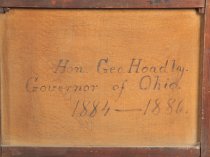 Hon. Geo. Hoadly.
Governor of Ohio.
1884—1886.